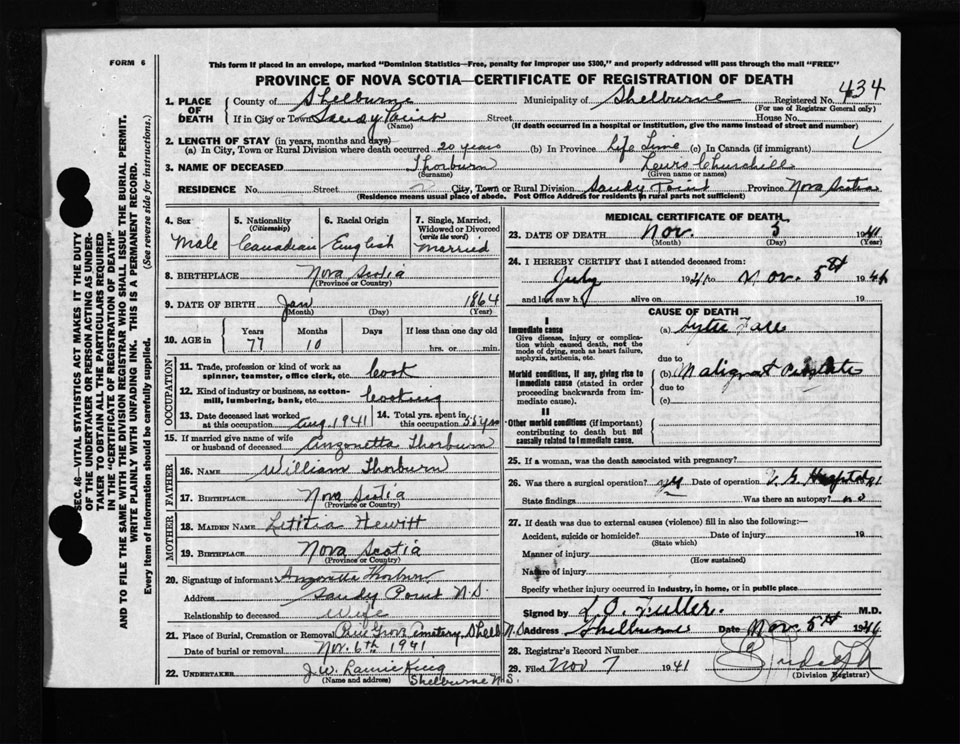 FORM 6
This form if placed in an envelope, marked "Dominion Statistics—Free, penalty for improper use $300," and properly addressed will pass through the mail "FREE"
PROVINCE OF NOVA SCOTIA—CERTIFICATE OF REGISTRATION OF DEATH
SEC. 46—VITAL STATISTICS ACT MAKES IT THE DUTY
OF THE UNDERTAKER OR PERSON ACTING AS UNDER-
TAKER TO OBTAIN ALL THE PARTICULARS REQUIRED
IN THE "CERTIFICATE OF REGISTRATION OF DEATH"
AND TO FILE THE SAME WITH THE DIVISION REGISTRAR WHO SHALL ISSUE THE BURIAL PERMIT.
WRITE PLAINLY WITH UNFADING INK. THIS IS A PERMANENT RECORD.
Every item of information should be carefully supplied. (See reverse side for instructions.)
1. PLACE OF DEATH
County of Shelburne Municipality of Shelburne Registered No. 434
(For use of Registrar General only)
If in City or Town Sandy Point Street House No.
(Name) (If death occurred in a hospital or institution, give the name instead of street and number)
2. LENGTH OF STAY (in years, months and days)
(a) In City, Town or Rural Division where death occurred 20 years (b) In Province Life Time (c) In Canada (if immigrant)
3. NAME OF DECEASED Thorburn Lewis Churchill
(Surname) (Given name or names)
RESIDENCE No. Street City, Town or Rural Division Sandy Point Province Nova Scotia
(Residence means usual place of abode. Post Office Address for residents in rural parts not sufficient)
4. Sex Male
5. Nationality (Citizenship) Canadian
6. Racial Origin English
7. Single, Married, Widowed or Divorced (write the word) Married
8. BIRTHPLACE Nova Scotia
(Province or Country)
9. DATE OF BIRTH Jan 1864
(Month) (Day) (Year)
10. AGE in Years Months Days If less than one day old
77 10 hrs. or min.
OCCUPATION
11. Trade, profession or kind of work as spinner, teamster, office clerk, etc. Cook
12. Kind of industry or business, as cotton-mill, lumbering, bank, etc. Cooking
13. Date deceased last worked at this occupation Aug. 1941
14. Total yrs. spent in this occupation 55 yrs
15. If married give name of wife or husband of deceased Anzonetta Thorburn
FATHER
16. NAME William Thorburn
17. BIRTHPLACE Nova Scotia
(Province or Country)
MOTHER
18. MAIDEN NAME Letitia Hewitt
19. BIRTHPLACE Nova Scotia
(Province or Country)
20. Signature of informant Anzonetta Thorburn
Address Sandy Point N.S.
Relationship to deceased Wife
21. Place of Burial, Cremation or Removal Pine Grove Cemetery, Shelb N.S.
Date of burial or removal Nov. 6th 1941
22. UNDERTAKER J.W.
(Name and address) Shelburne N.S.
MEDICAL CERTIFICATE OF DEATH
23. DATE OF DEATH Nov. 5 1941
(Month) (Day) (Year)
24. I HEREBY CERTIFY that I attended deceased from:
July 1941 to Nov. 5th 1941
and last saw h alive on 19
CAUSE OF DEATH
I
Immediate cause
Give disease, injury or complication which caused death, not the mode of dying, such as heart failure, asphyxia, asthenia, etc.
(a)
due to
Morbid conditions, if any, giving rise to immediate cause (stated in order proceeding backwards from immediate cause).
(b) Malignant Prostate
due to
(c)
II
Other morbid conditions (if important) contributing to death but not causally related to immediate cause.
25. If a woman, was the death associated with pregnancy?
26. Was there a surgical operation? yes Date of operation V. G. Hospital
State findings Was there an autopsy? no
27. If death was due to external causes (violence) fill in also the following:—
Accident, suicide or homicide? Date of injury 19
(State which)
Manner of injury
(How sustained)
Nature of injury
Specify whether injury occurred in industry, in home, or in public place
Signed by L. O. Fuller. M.D.
Address Shelburne Date Nov. 5th 1941
28. Registrar's Record Number
29. Filed Nov 7 1941
(Division Registrar)